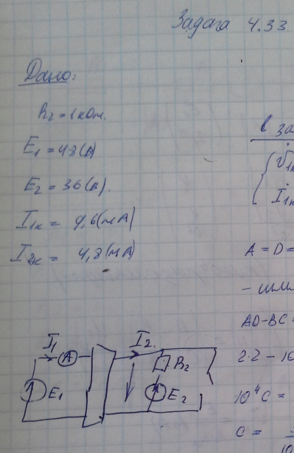 Задача 4.33
Дано:
R₂ = 1 кОм.
E₁ = 48 (В)
E₂ = 36 (В).
I₁ₖ = 9,6 (мА)
I₂ₖ = 4,8 (мА)
A = D =
AD-BC =
2·2 - 10
10⁴C =
C =
I₁
A
E₁
I₂
R₂
E₂